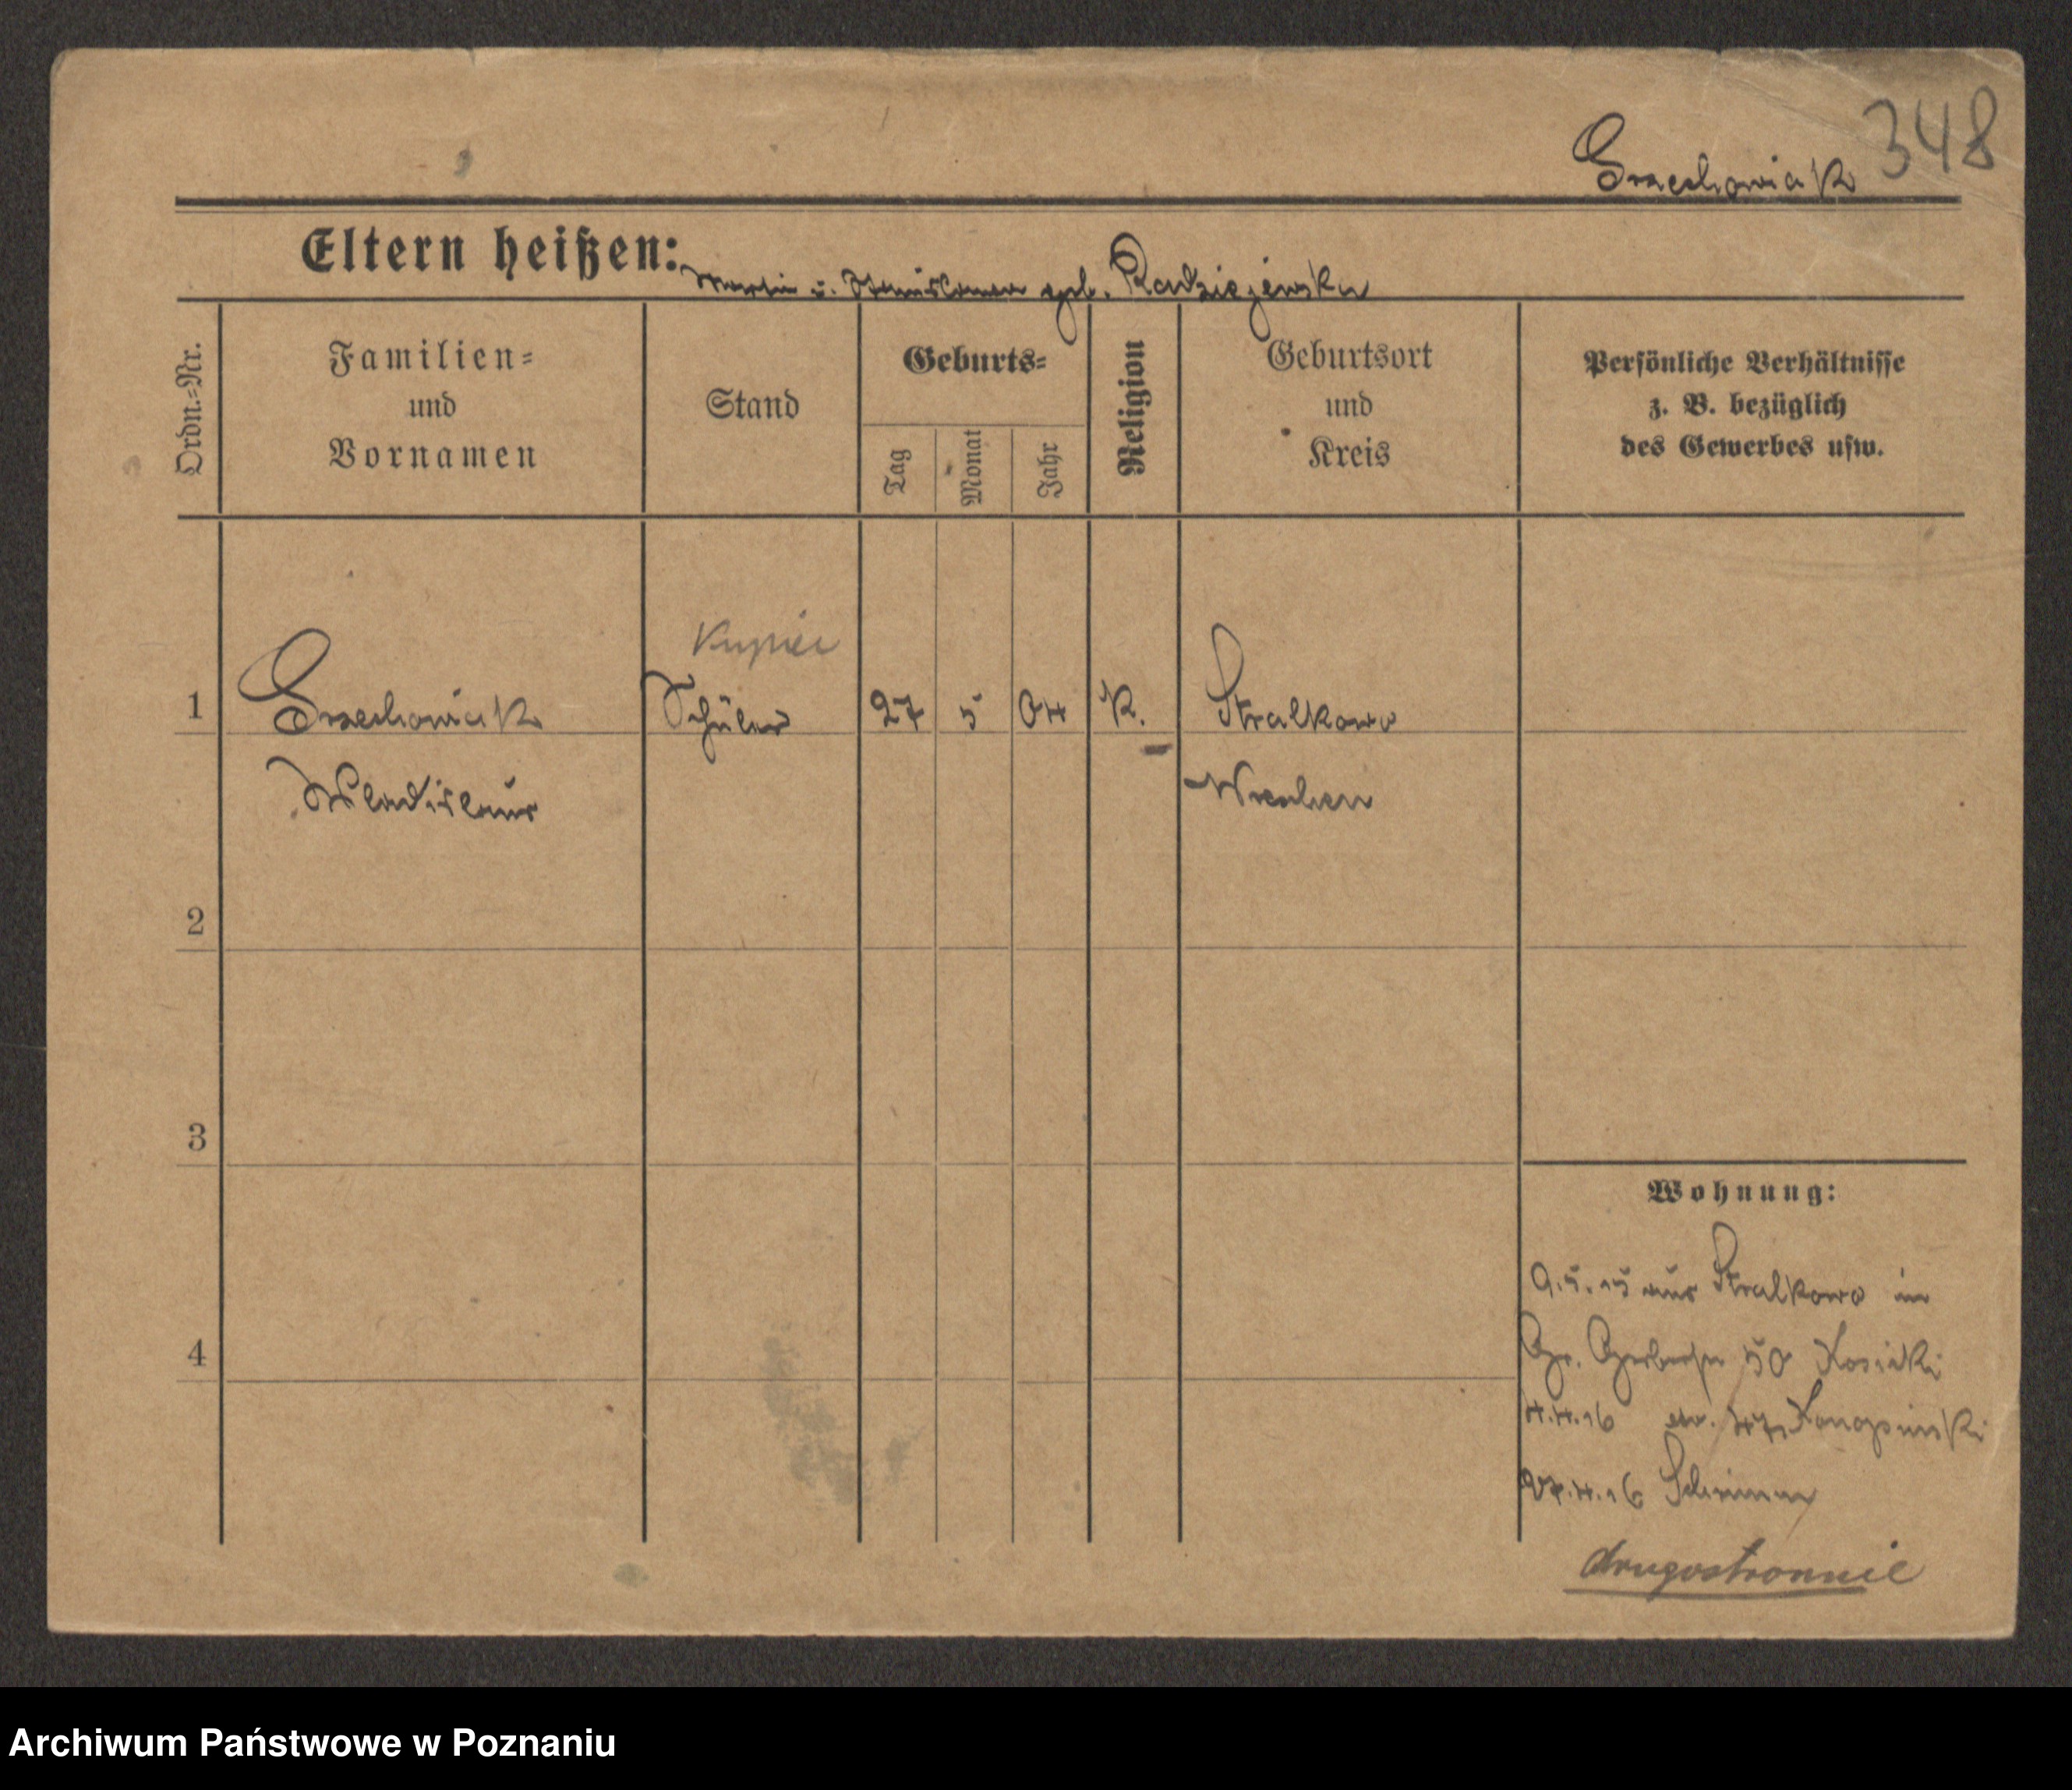 348
Grzechowiak
Eltern heißen: Martin u. Stanislawa geb. Radziejewska
Ordn.-Nr.
Familien-
und
Vornamen
Stand
Geburts-
Tag
Monat
Jahr
Religion
Geburtsort
und
Kreis
Persönliche Verhältnisse
z. B. bezüglich
des Gewerbes usw.
Kupiec
1 Grzechowiak Schüler 27 5 04 K. Stralkowo
Wladislaus Wreschen
2
3
Wohnung:
9.5.15 aus Stralkowo in
Gr. Gerberstr 50 Kosicki
4
4.4.16 47 Konopinski
27.4.16 Schrimm
drugostronnie
Archiwum Państwowe w Poznaniu